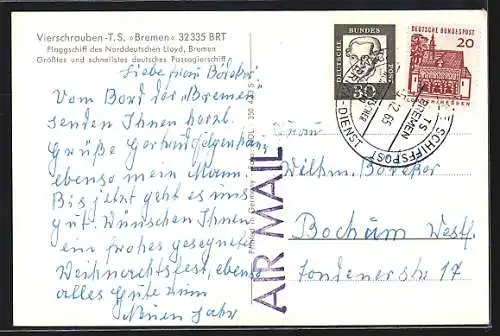 Vierschrauben-T.S. »Bremen« 32 335 BRT
Flaggschiff des Norddeutschen Lloyd, Bremen
Größtes und schnellstes deutsches Passagierschiff
Liebe Frau Böleker!
Vom Bord der „Bremen"
senden Ihnen herzl.
Grüße Gertrud
ebenso mein Mann.
Bis jetzt geht es uns
gut. Wünschen Ihnen
ein frohes gesegnetes
Weihnachtsfest, ebenso
alles Gute zum
Neuen Jahr
Printed in Germany
AIR MAIL
DEUTSCHE BUNDESPOST
30
DEUTSCHE BUNDESPOST
20
-DIENST
12.65
TS BREMEN
SCHIFFSPOST
Frau
Wilhm. Böleker
Bochum Westf.
17